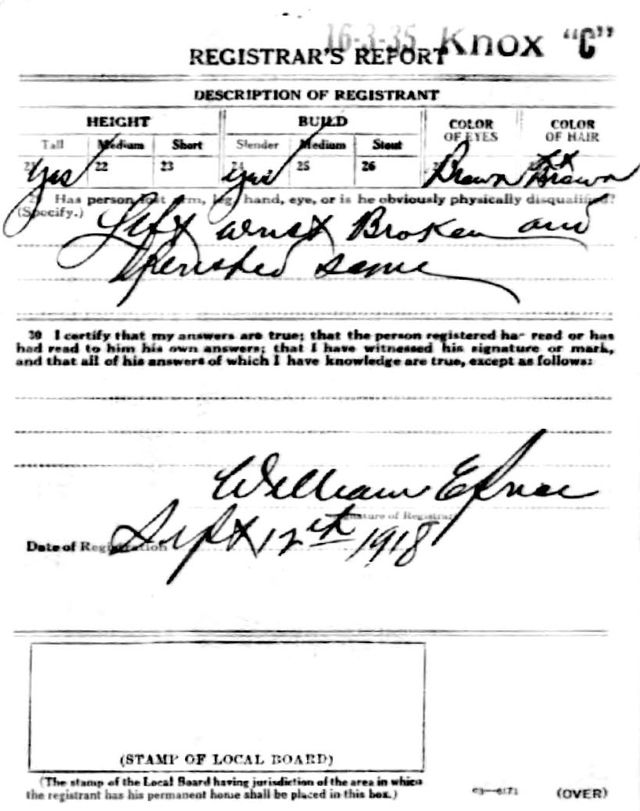 16-3-35 Knox "C"
REGISTRAR'S REPORT
DESCRIPTION OF REGISTRANT
HEIGHT BUILD COLOR OF EYES COLOR OF HAIR
Tall Medium Short Slender Medium Stout
21 22 23 24 25 26
Yes yes Brown Brown
29 Has person lost arm, leg, hand, eye, or is he obviously physically disqualified?
(Specify.)
Left wrist Broken and
same
30 I certify that my answers are true; that the person registered has read or has
had read to him his own answers; that I have witnessed his signature or mark,
and that all of his answers of which I have knowledge are true, except as follows:
William
(Signature of Registrar)
Date of Registration Sept 12th 1918
(STAMP OF LOCAL BOARD)
(The stamp of the Local Board having jurisdiction of the area in which
the registrant has his permanent home shall be placed in this box.)
(OVER)